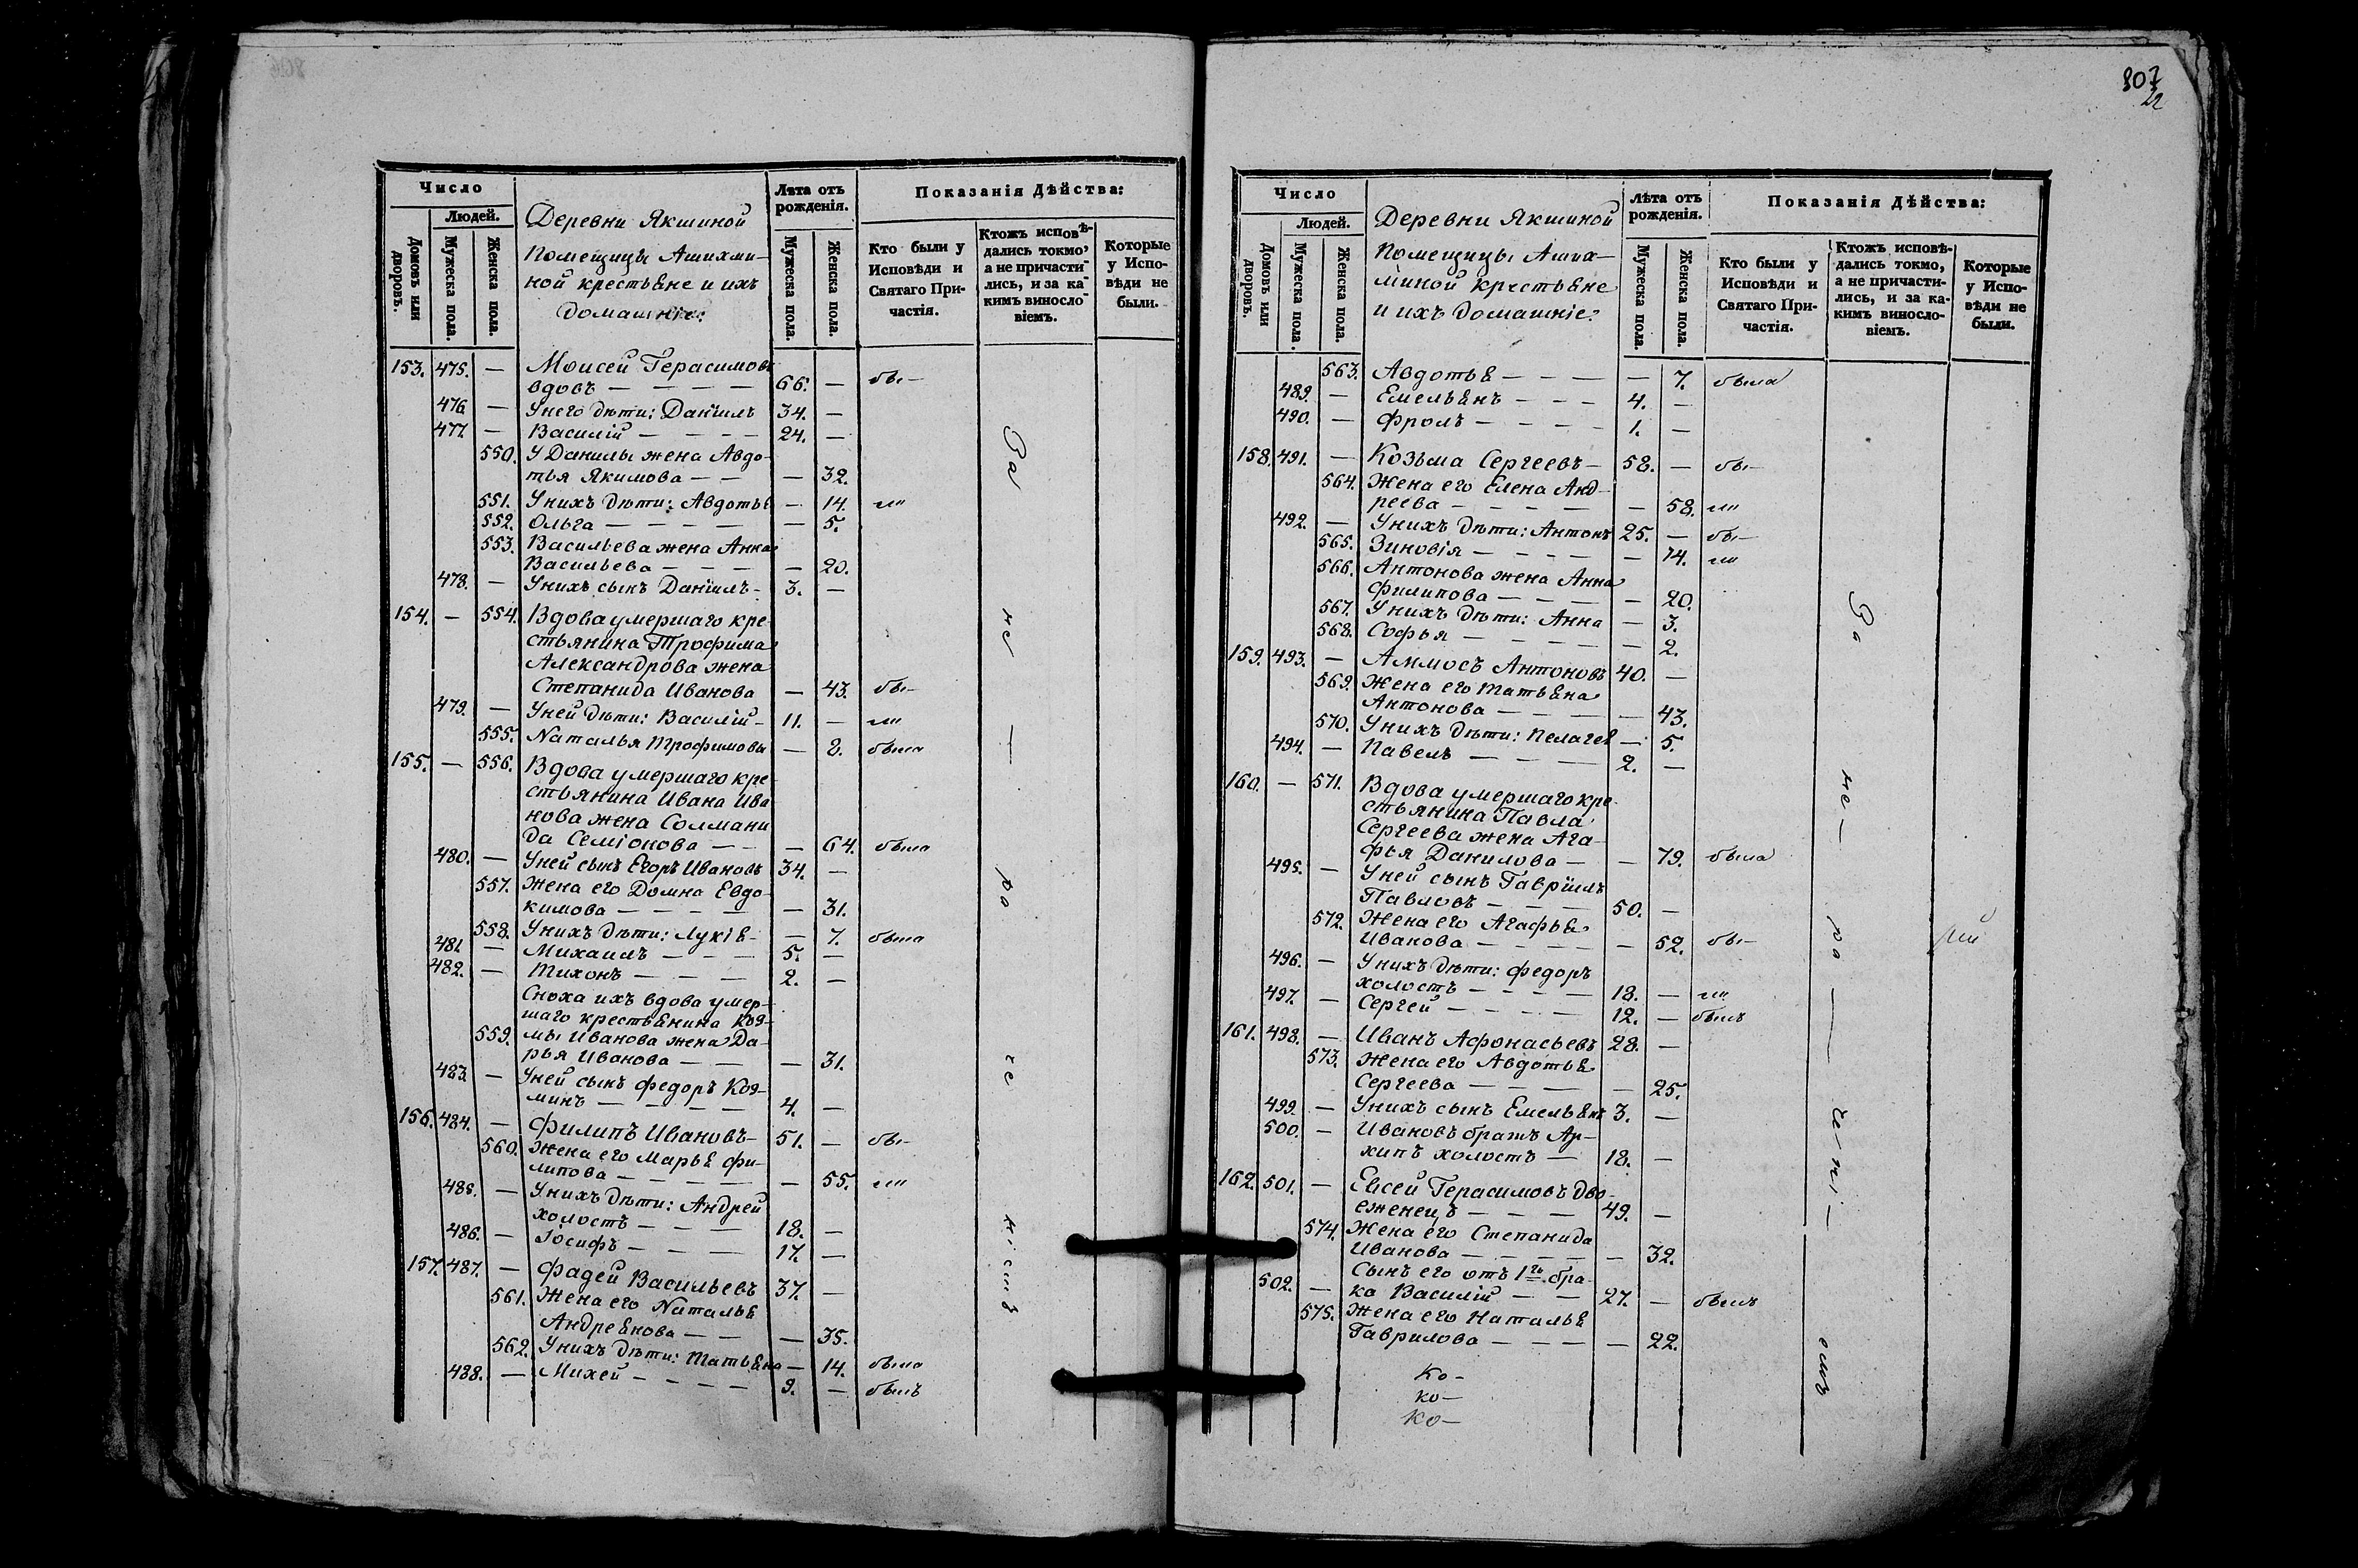 Число
Людей.
Домовъ или дворовъ.
Мужеска пола.
Женска пола.
Деревни Якшиной
Помещицы Ашихми-
ной крестьяне и ихъ
домашніе:
Лѣта отъ рожденія.
Мужеска пола.
Женска пола.
Показанія Дѣйства:
Кто были у Исповѣди и Святаго При-частія.
Ктожъ исповѣ-дались токмо, а не причасти-лись, и за ка-кимъ винословіемъ.
Которые у Испо-вѣди не были.
153. 475. — Моисей Герасимовъ
вдовъ — — — — 66. — бы—
476 — Унего дѣти: Даніилъ 34. —
477. — Василій — — — 24. —
550. У Данилы жена Авдо-
тья Якимова — — — 32.
551. Унихъ дѣти: Авдотья — 14. ли
552. Ольга — — — — — 5.
553. Васильева жена Анна
Васильева — — — — 20.
478. — Унихъ сынъ Даніилъ — 3. —
154. — 554. Вдова умершаго кре-
стьянина Трофима
Александрова жена
Степанида Иванова — 43. бы—
479. — Уней дѣти: Василій — 11. — ли
555. Наталья Трофимовы — 8. была
155. — 556. Вдова умершаго кре-
стьянина Ивана Ива
нова жена Соломани
да Семіонова — — — 64. была
480. — Уней сынъ Егоръ Ивановъ 34. —
557. Жена его Домна Евдо-
кимова — — — — — 31.
558. Унихъ дѣти: Лукія — — 7. была
481 — Михаилъ — — — 5. —
482. — Тихонъ — — — 2. —
Сноха ихъ вдова умер-
шаго крестьянина Коз-
559. мы Иванова жена Да-
рья Иванова — — — 31.
483. — Уней сынъ Федоръ Коз-
минъ — — — — 4. —
156. 484. — Филипъ Ивановъ — 51. — бы—
560. Жена его Марья Фи-
липова — — — — — 55. ли
485. — Унихъ дѣти: Андрей
холостъ — — — 18. —
486. — Іосифъ — — — 17. —
157. 487. — Фадей Васильевъ 37. —
561. Жена его Наталья
Андреянова — — — 35.
562. Унихъ дѣти: Татьяна — 14. была
488. — Михей — — — — 9. — былъ
За не — ра че ніемъ
807
22
Число
Людей.
Домовъ или дворовъ.
Мужеска пола.
Женска пола.
Деревни Якшиной
Помещицы Аших-
миной крестьяне
и ихъ домашніе:
Лѣта отъ рожденія.
Мужеска пола.
Женска пола.
Показанія Дѣйства:
Кто были у Исповѣди и Святаго При-частія.
Ктожъ исповѣ-дались токмо, а не причасти-лись, и за ка-кимъ винословіемъ.
Которые у Испо-вѣди не были.
563. Авдотья — — — — 7. была
489. — Емельянъ — — — 4. —
490. — Фролъ — — — — 1. —
158. 491. — Козьма Сергеевъ — 58. — бы—
564. Жена его Елена Анд-
реева — — — — — 58. ли
492. — Унихъ дѣти: Антонъ 25. — бы—
565. Зиновія — — — — — 14. ли
566. Антонова жена Анна
Филипова — — — — 20.
567. Унихъ дѣти: Анна — 3.
568. Софья — — — — — 2.
159. 493. — Аммосъ Антоновъ 40. —
569. Жена его Татьяна
Антонова — — — — 43.
570. Унихъ дѣти: Пелагея — 5.
494. — Павелъ — — — 2. —
160. — 571. Вдова умершаго кре-
стьянина Павла
Сергеева жена Ага-
фья Данилова — — 79. была
495. — Уней сынъ Гавріилъ
Павловъ — — — 50. —
572. Жена его Агафья
Иванова — — — — — 52. бы—
496. — Унихъ дѣти: Федоръ
холостъ — — — — 18. — ли
497. — Сергей — — — — 12. — былъ
161. 498. — Иванъ Афонасьевъ 28. —
573. Жена его Авдотья
Сергеева — — — — — 25.
499. — Унихъ сынъ Емельянъ 3. —
500. — Ивановъ братъ Ар-
хипъ холостъ — 18. —
162. 501. — Елисей Герасимовъ дво-
еженецъ — — — 49. —
574. Жена его Степанида
Иванова — — — — — 32.
Сынъ его отъ 1го бра-
502. — ка Василій — — 27. — былъ
575. Жена его Наталья
Гаврилова — — — — 22.
Ко-
ко-
Ко-
За не — ра — че ні — емъ